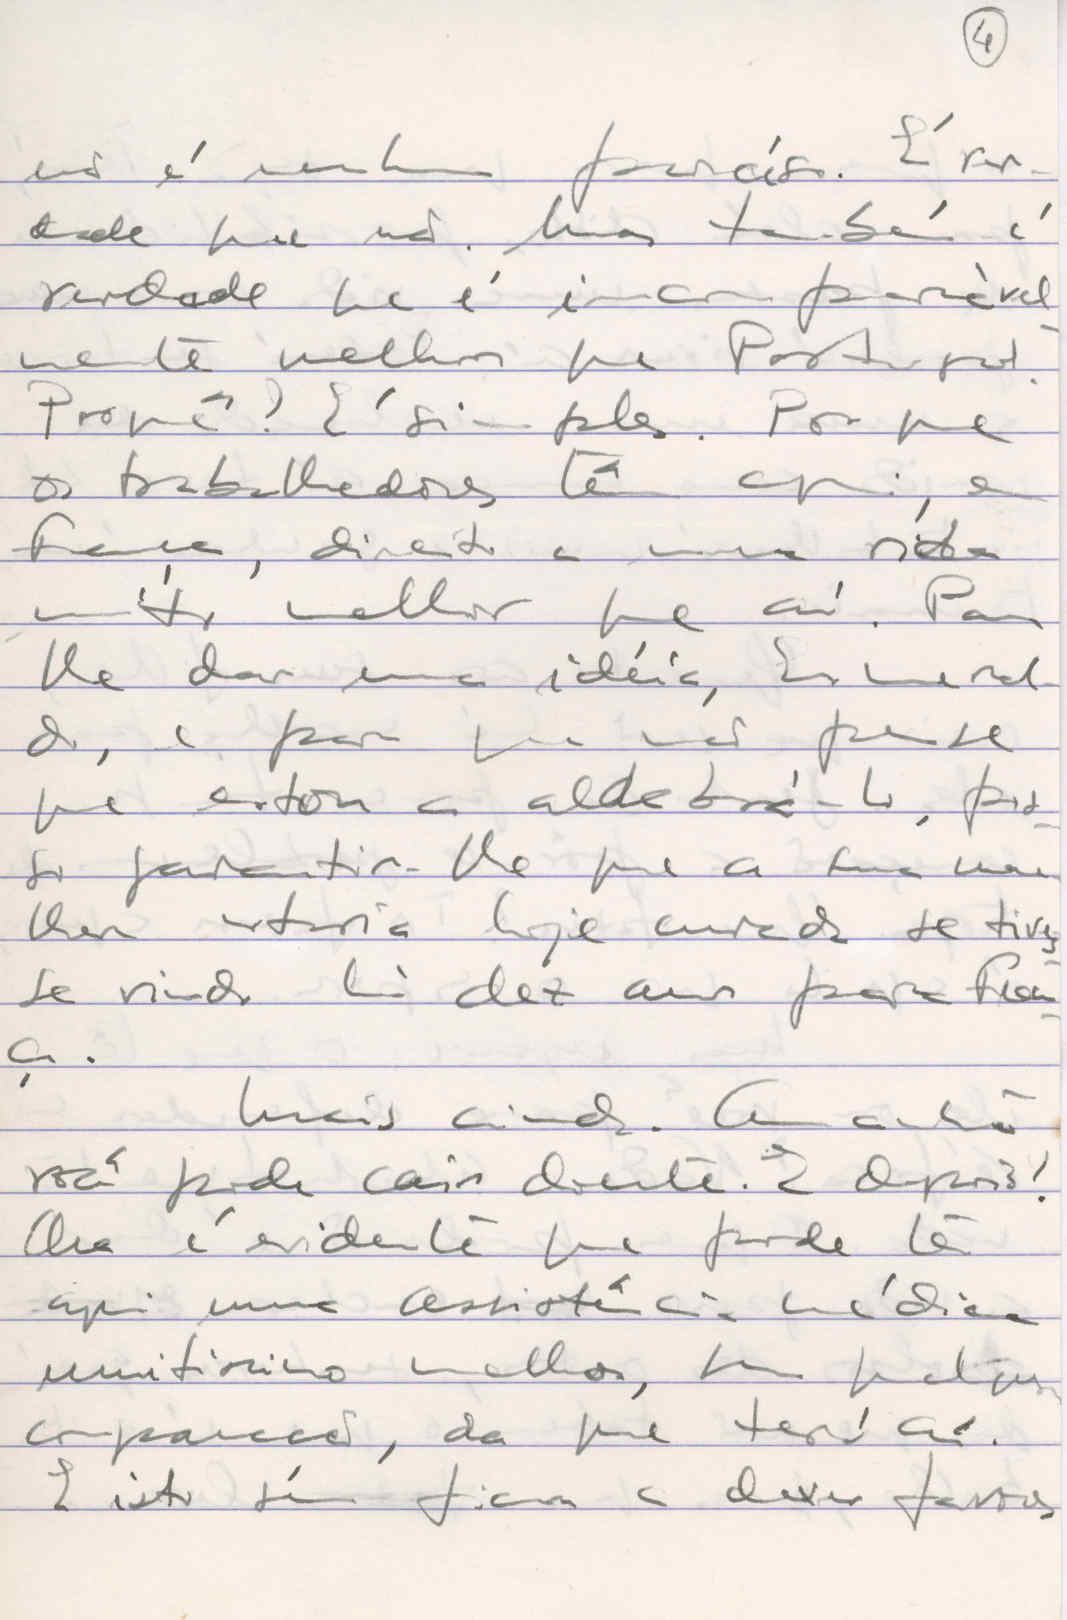 4
não é nenhum paraíso. É ver-
dade que não. Mas também é
verdade que é incomparàvel
mente melhor que Portugal.
Proquê? É simples. Porque
os trabalhadores têm aqui, em
França, direito a uma vida
muito melhor que aí. Para
lhe dar uma idéia, Esmeral
do, e para que não pense
que estou a aldabrá-lo, pos-
so garantir-lhe que a sua mu
lher estaria hoje curada se tives
se vindo há dez anos para Fran-
ça.
Mais ainda. Amanhã
você pode cair doente. E depois?
Ora é evidente que pode ter
aqui uma assistência médica
muitissimo melhor, sem qualquer
comparação, da que terá aí.
E isto sem ficar a dever favores